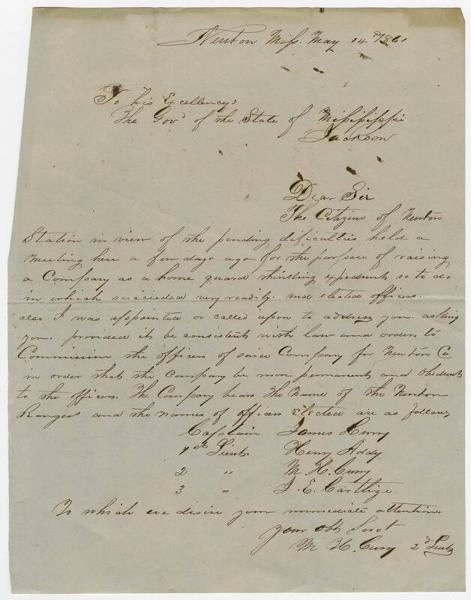 Newton Miss. May 14th 1861
To his Excellency
The Gov.r of the State of Mississippi
Jackson
Dear Sir
The Citizens of Newton
Station in view of the pending dificulties held a
meeting here a few days ago for the purpose of raising
a Company as a home guard thinking expedient so to do
in which succeeded very readily and elected officers.
also I was appointed or called upon to address you asking
you provided it be consistent with law and order to
Commission the officers of said Company for Newton Co
in order that the Company be more permanent and Obedient
to the officers. The Company bears the Name of the Newton
Rangers and the names of officers Elected are as follows
Captain James
1st Lieut. Henry Addy
2 " M. H.
3 " J. E.
To which we desire your immediate attention
Your Obt Servt
M. H. 2d Lieut